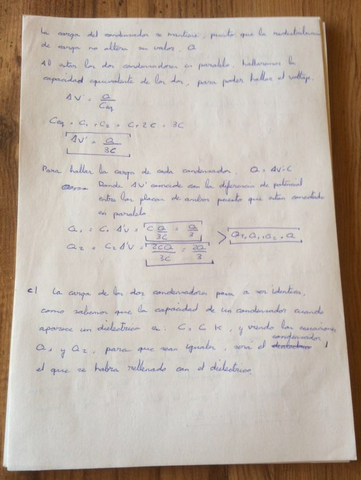 La carga del condensador se mantiene, puesto que la redistribución
de carga no altera su valor Q
Al estar los dos condensadores en paralelo hallaremos la
capacidad equivalente de los dos, para poder hallar el voltaje.
ΔV' = Q/Ceq
Ceq = C1 + C2 = C + 2C = 3C
ΔV' = Q/3C
Para hallar la carga de cada condensador, Q = ΔV·C
Donde ΔV' coincide con la diferencia de potencial
entre las placas de ambos puesto que están conectados
en paralelo
Q1 = C1 ΔV' = C Q/3C = Q/3
Q2 = C2 ΔV' = 2CQ/3C = 2Q/3 > Q1 + Q2 = Q
c) La carga de los dos condensadores pasa a ser idéntica,
como sabemos que la capacidad de un condensador cuando
aparece un dieléctrico C K, y viendo las
Q1 y Q2, para que sean iguales, será el condensador 1
el que se habrá rellenado con el dieléctrico.